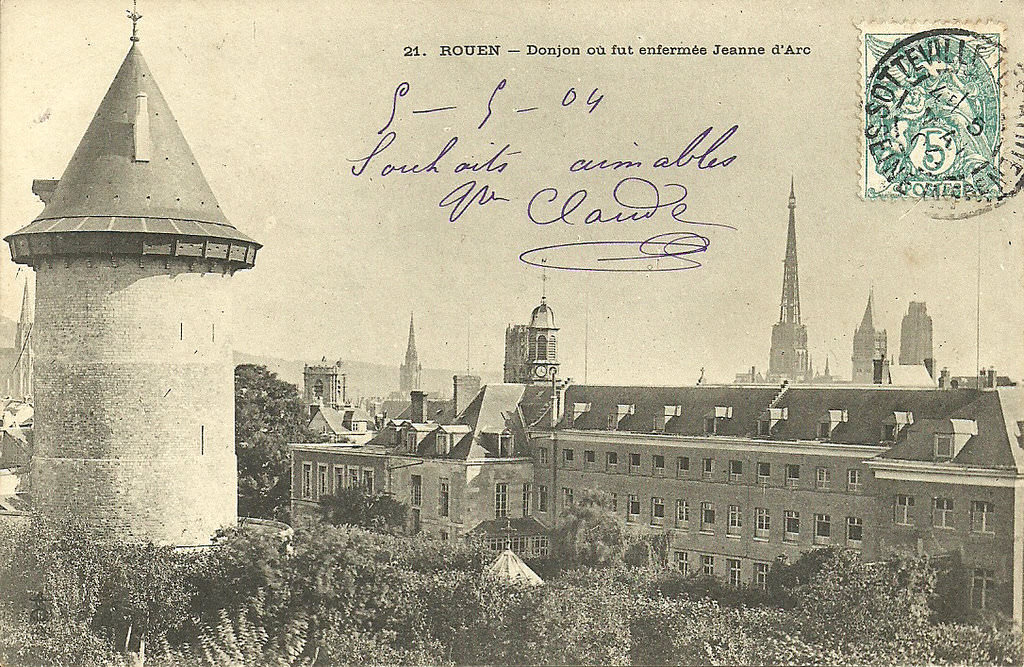 21. ROUEN — Donjon où fut enfermée Jeanne d'Arc
5 - 5 - 04
Souhaits aimables
Claude
SOTTEVILLE LES ROUEN
5
POSTES